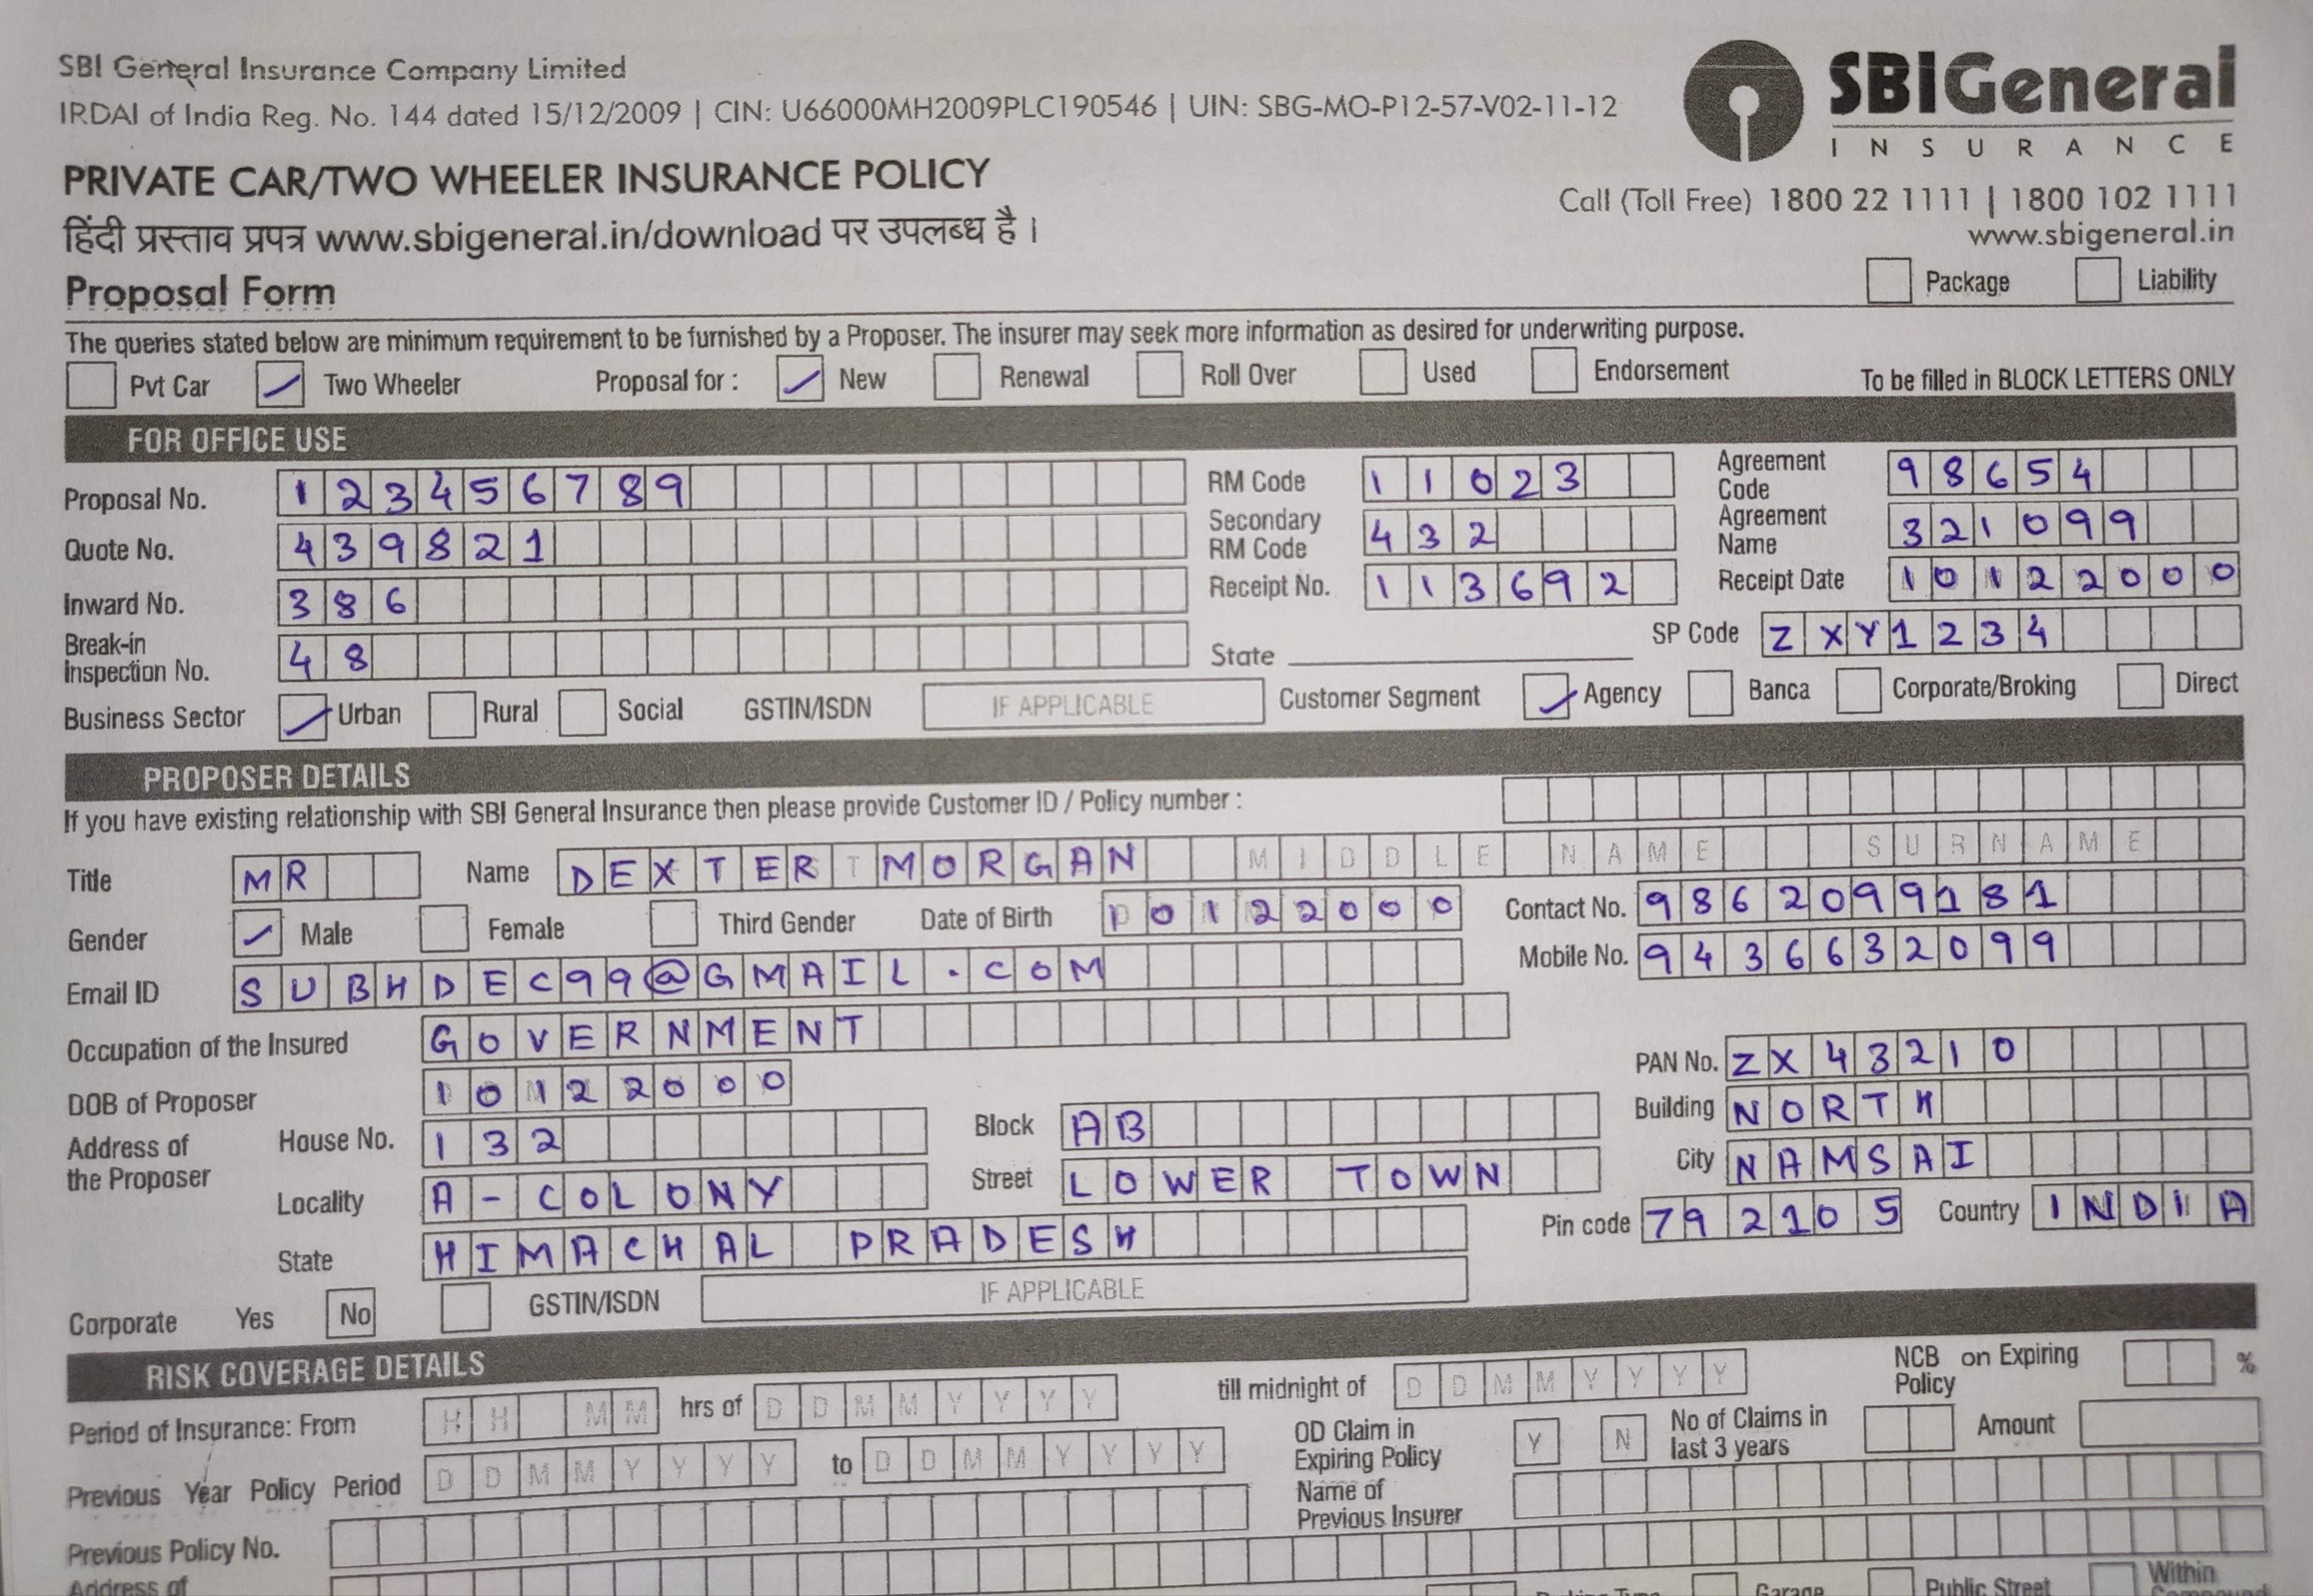 SBI General Insurance Company Limited
IRDAI of India Reg. No. 144 dated 15/12/2009 | CIN: U66000MH2009PLC190546 | UIN: SBG-MO-P12-57-V02-11-12
SBIGeneral
INSURANCE
PRIVATE CAR/TWO WHEELER INSURANCE POLICY
Call (Toll Free) 1800 22 1111 | 1800 102 1111
हिंदी प्रस्ताव प्रपत्र www.sbigeneral.in/download पर उपलब्ध है।
www.sbigeneral.in
Proposal Form
Package Liability
The queries stated below are minimum requirement to be furnished by a Proposer. The insurer may seek more information as desired for underwriting purpose.
Pvt Car Two Wheeler Proposal for : New Renewal Roll Over Used Endorsement To be filled in BLOCK LETTERS ONLY
FOR OFFICE USE
Proposal No. 123456789 RM Code 11023 Agreement Code 98654
Quote No. 439821 Secondary RM Code 432 Agreement Name 321099
Inward No. 386 Receipt No. 113692 Receipt Date 10122000
Break-in Inspection No. 48 State SP Code ZXY1234
Business Sector Urban Rural Social GSTIN/ISDN IF APPLICABLE Customer Segment Agency Banca Corporate/Broking Direct
PROPOSER DETAILS
If you have existing relationship with SBI General Insurance then please provide Customer ID / Policy number :
Title MR Name DEXTER MORGAN MIDDLE NAME SURNAME
Gender Male Female Third Gender Date of Birth 10122000 Contact No. 9862099181
Email ID SUBHDEC99@GMAIL.COM Mobile No. 9436632099
Occupation of the Insured GOVERNMENT
PAN No. ZX43210
DOB of Proposer 10122000
Address of the Proposer House No. 132 Block AB Building NORTH
Locality A-COLONY Street LOWER TOWN City NAMSAI
State HIMACHAL PRADESH Pin code 792105 Country INDIA
Corporate Yes No GSTIN/ISDN IF APPLICABLE
RISK COVERAGE DETAILS
Period of Insurance: From HH MM hrs of DDMMYYYY till midnight of DDMMYYYY NCB on Expiring Policy %
Previous Year Policy Period DDMMYYYY to DDMMYYYY OD Claim in Expiring Policy Y N No of Claims in last 3 years Amount
Previous Policy No. Name of Previous Insurer
Address of
Garage Public Street Within